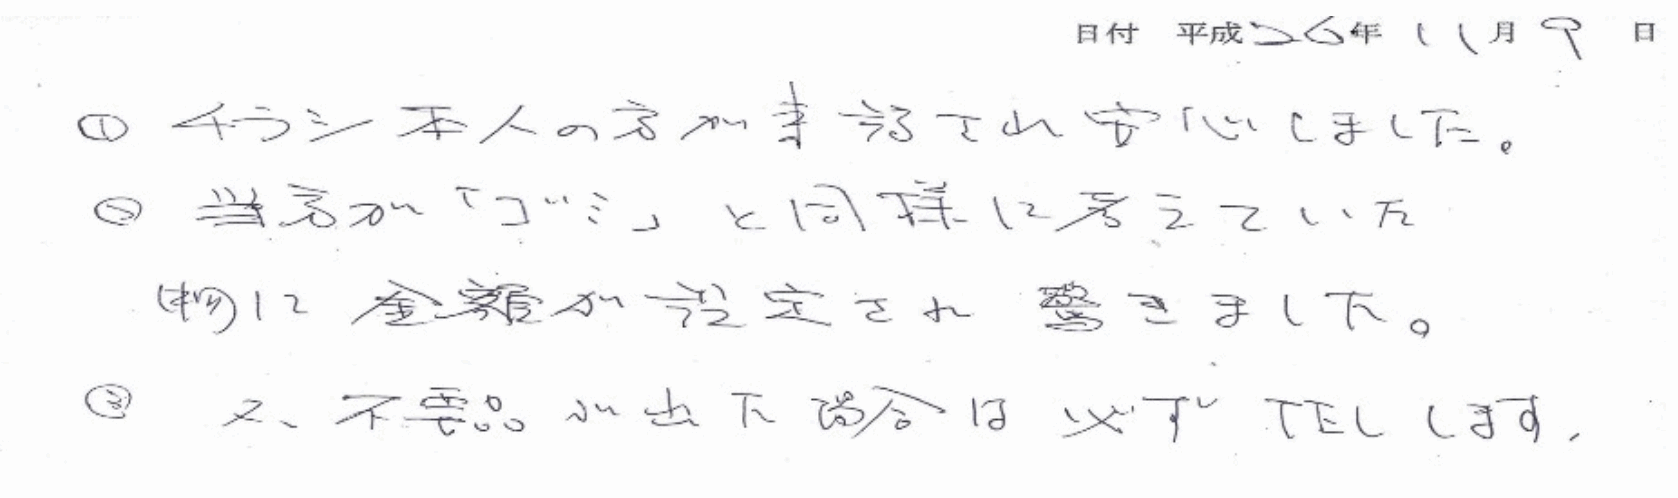 日付 平成26年11月9日
① チラシ本人の方が来訪され安心しました。
② 当方が「ゴミ」と同様に考えていた
物に金額が設定され驚きました。
③ 又、不要品が出た場合は必ずTELします.